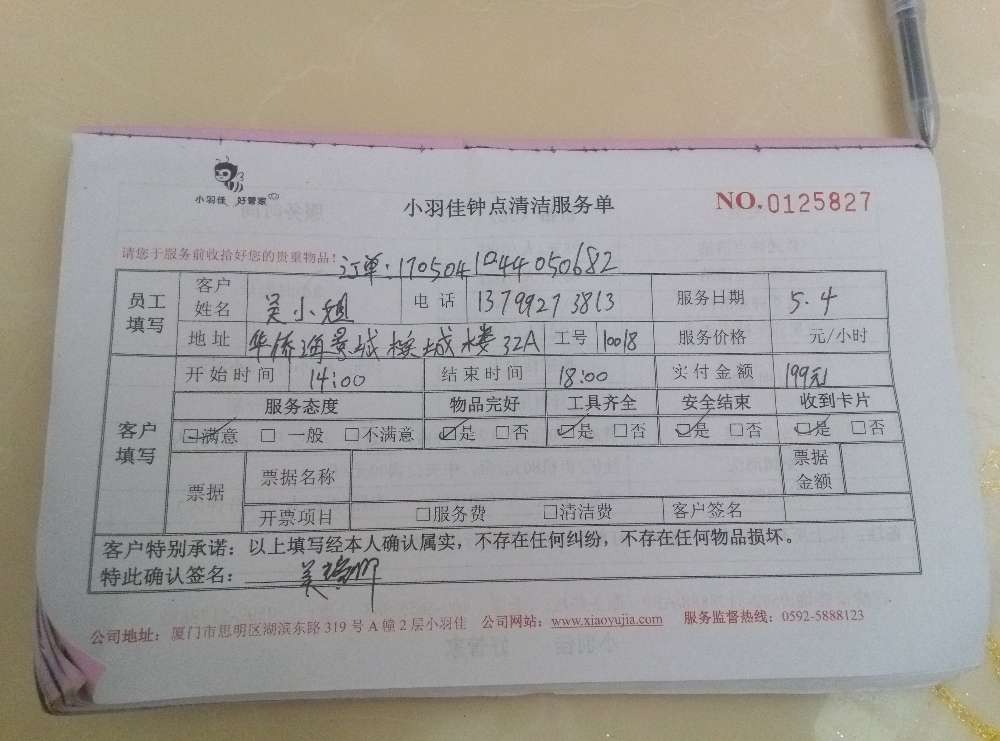 小羽佳 好管家
小羽佳钟点清洁服务单
NO.0125827
请您于服务前收拾好您的贵重物品!
订单:1705041044050682
员工填写 客户姓名 吴小姐 电话 13799273813 服务日期 5.4
地址 华侨海景城槟城楼32A 工号 10018 服务价格 元/小时
客户填写 开始时间 14:00 结束时间 18:00 实付金额 199元
服务态度 物品完好 工具齐全 安全结束 收到卡片
☑满意 □一般 □不满意 ☑是 □否 ☑是 □否 ☑是 □否 ☑是 □否
票据 票据名称 票据金额
开票项目 □服务费 □清洁费 客户签名
客户特别承诺:以上填写经本人确认属实,不存在任何纠纷,不存在任何物品损坏。
特此确认签名:
公司地址:厦门市思明区湖滨东路319号A幢2层小羽佳 公司网站:www.xiaoyujia.com 服务监督热线:0592-5888123